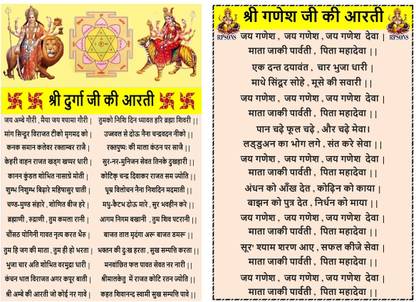 श्री दुर्गा जी की आरती
जय अम्बे गौरी, मैया जय श्यामा गौरी | तुमको निशि दिन ध्यावत हरि ब्रह्मा शिवरी ||
मांग सिन्दूर विराजत टीको मृगमद को | उज्जवल से दोऊ नैना चन्द्रवदन नीको ||
कनक समान कलेवर रक्ताम्बर राजै | रक्तपुष्प की माला कंठन पर साजै ||
केहरि वाहन राजत खड्ग खप्पर धारी | सुर-नर-मुनिजन सेवत तिनके दुखहारी ||
कानन कुंडल शोभित नासाग्रे मोती | कोटिक् चन्द्र दिवाकर राजत सम ज्योति ||
शुम्भ निशुम्भ बिदारे महिषासुर घाती | धूम्र विलोचन नैना निशदिन मदमाती ||
चण्ड-मुण्ड संहारे, शोणित बीज हरे | मधु-कैटभ दोऊ मारे, सुर भयहीन करे ||
ब्रह्माणी, रुद्राणी, तुम कमला रानी | आगम निगम बखानी, तुम शिव पटरानी ||
चौंसठ योगिनी गावत नृत्य करत भैरु | बाजत ताल मृदंगा अरू बाजत डमरू ||
तुम हि जग की माता, तुम ही हो भरता | भक्तन की दुःख हरता, सुख सम्पति करता ||
भुजा चार अति शोभित वरमुद्रा धारी | मनवांछित फल पावत सेवत नर नारी ||
कंचन थाल विराजत अगर कपूर बाती | श्रीमालकेतु में राजत कोटि रतन ज्योति ||
श्री अम्बे की आरती जो कोई नर गावे | कहत शिवानन्द स्वामी सुख सम्पति पावे ||
श्री गणेश जी की आरती
RPSONS
RPSONS
जय गणेश , जय गणेश ,जय गणेश देवा |
माता जाकी पार्वती , पिता महादेवा ||
एक दन्त दयावंत , चार भुजा धारी |
माथे सिंदूर सोहे , मूसे की सवारी ||
जय गणेश , जय गणेश ,जय गणेश देवा |
माता जाकी पार्वती , पिता महादेवा ||
पान चढ़े फूल चढ़े , और चढ़े मेवा।
लड्डुअन का भोग लगे , संत करे सेवा ||
जय गणेश , जय गणेश ,जय गणेश देवा |
माता जाकी पार्वती , पिता महादेवा ||
अंधन को आँख देत , कोढ़िन को काया |
बाझन को पुत्र देत , निर्धन को माया ||
जय गणेश , जय गणेश ,जय गणेश देवा |
माता जाकी पार्वती , पिता महादेवा ||
सूर' श्याम शरण आए , सफल कीजे सेवा |
माता जाकी पार्वती , पिता महादेवा ||
जय गणेश , जय गणेश ,जय गणेश देवा |
माता जाकी पार्वती , पिता महादेवा ||